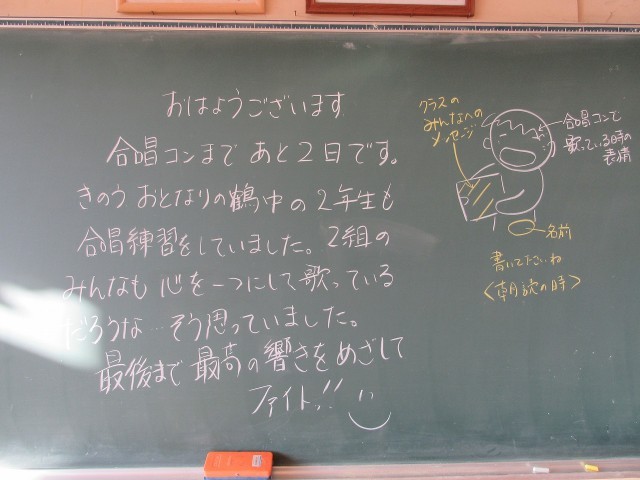 おはようございます
合唱コンまであと2日です。
きのうおとなりの鶴中の2年生も
合唱練習をしていました。2組の
みんなも心を一つにして歌っている
だろうな…そう思っていました。
最後まで最高の響きをめざして
ファイト!!
クラスの
みんなへの
メッセージ
合唱コンで
歌っている時の
表情
名前
書いてくださいね
<朝読の時>